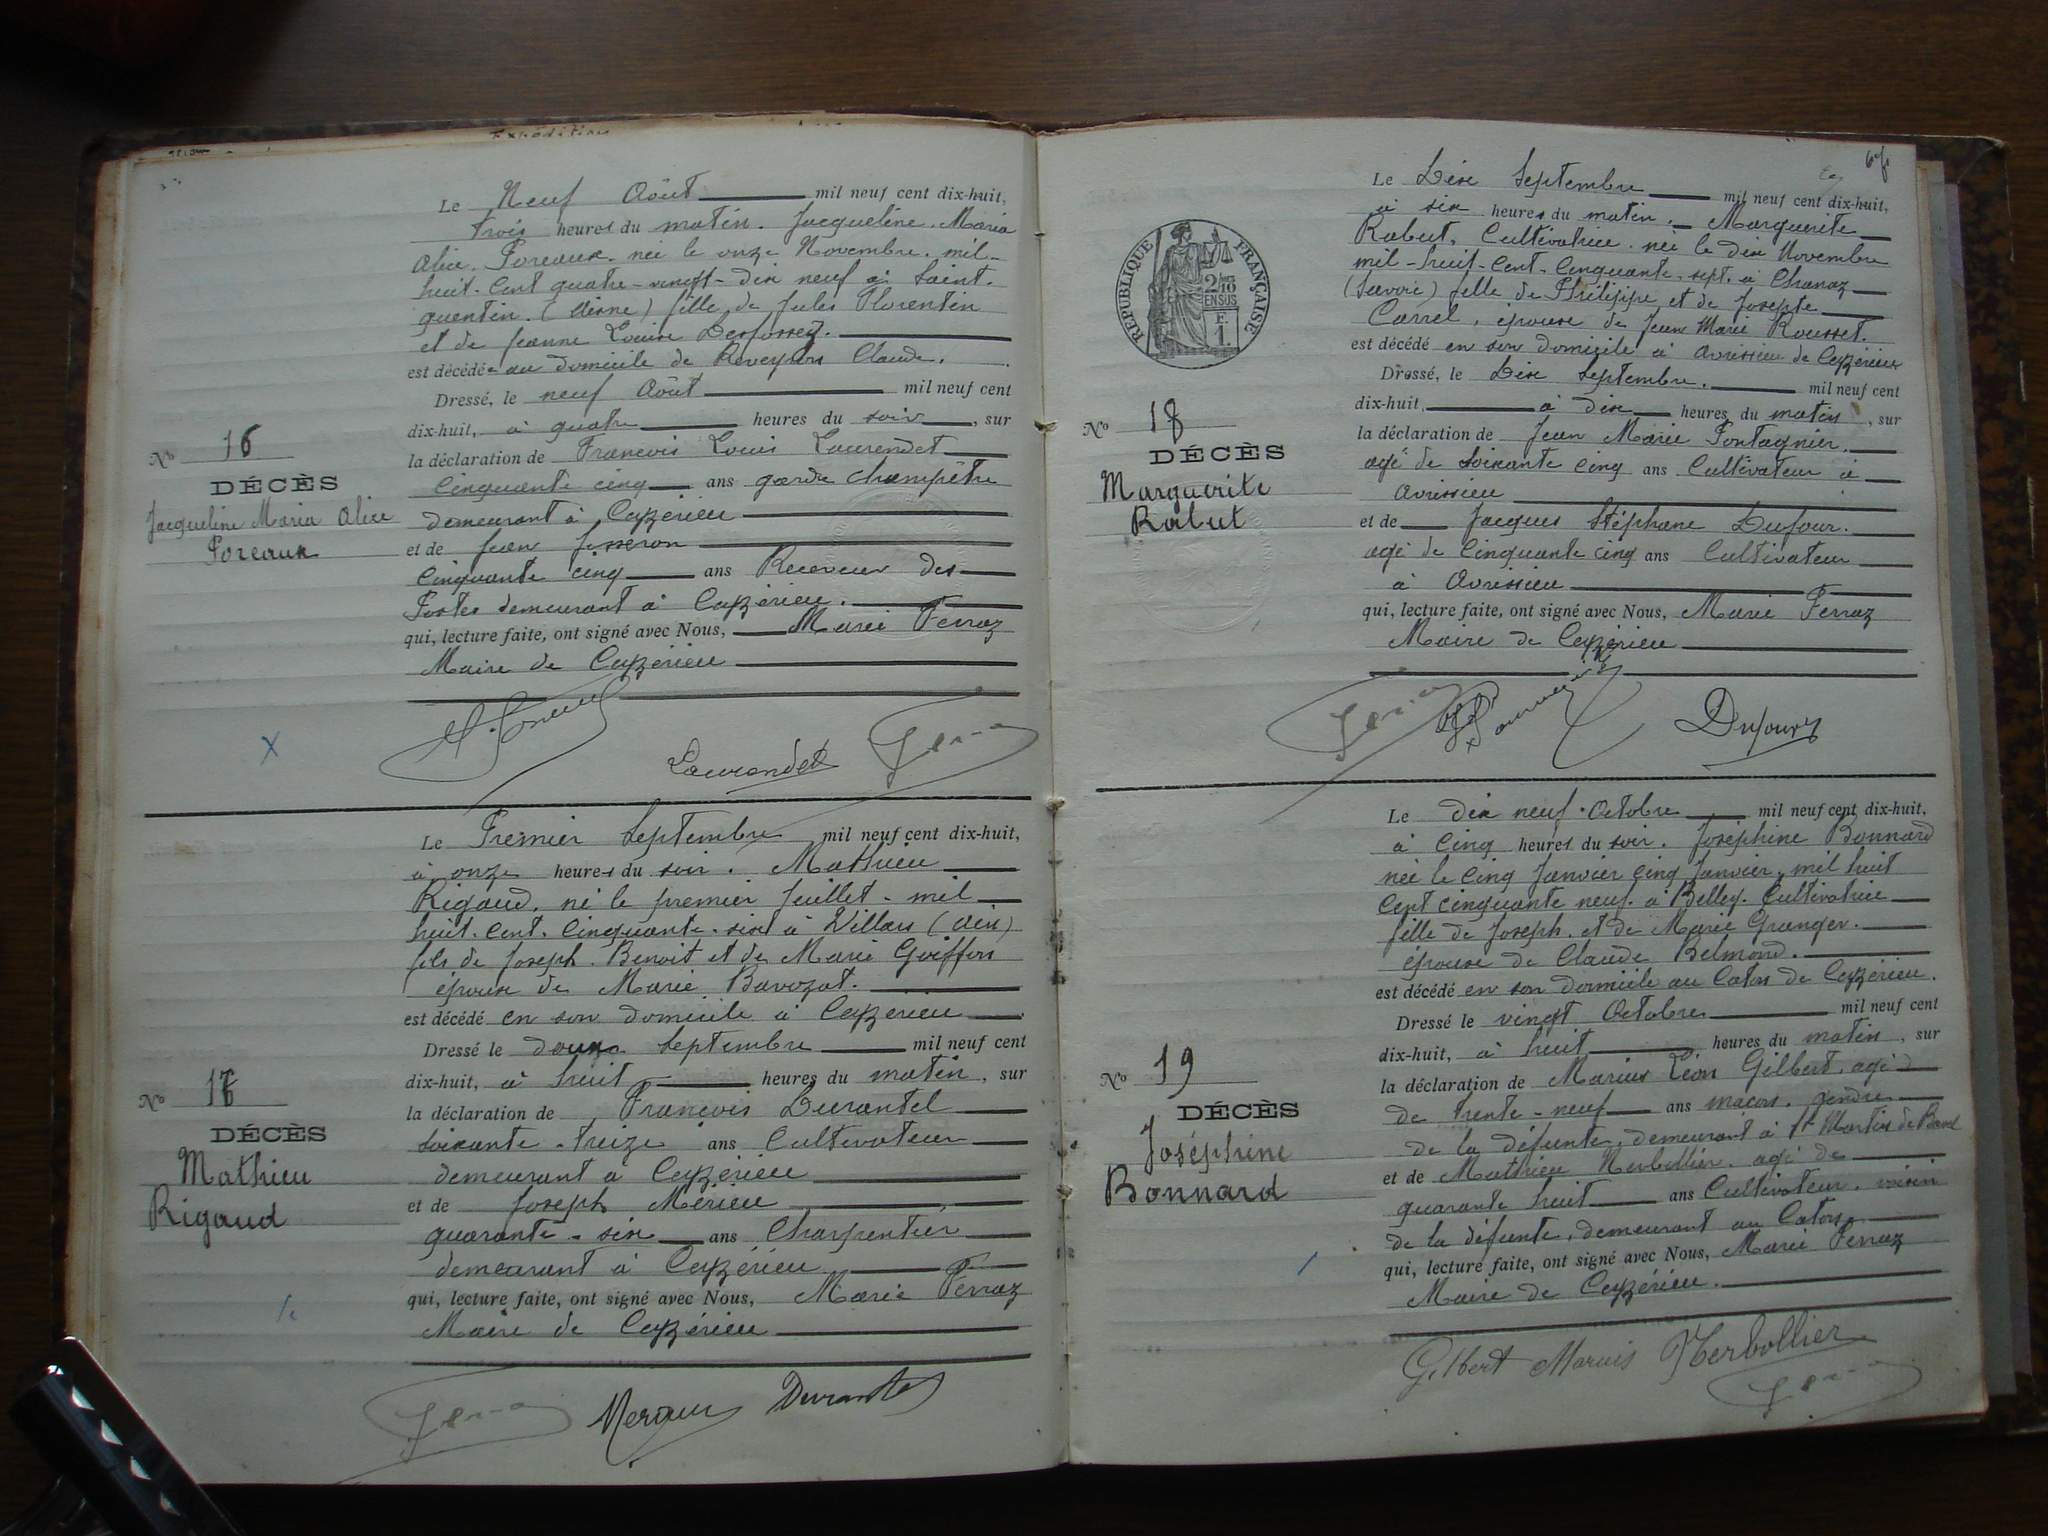 Expédition
Le Neuf Août mil neuf cent dix-huit,
trois heures du matin. Jacqueline. Maria
Alice. Poreaux. née le onze Novembre. mil-
huit-cent quatre-vingt-dix neuf à Saint.
quentin. (Aisne) fille de Jules Florentin
et de Jeanne Louise Desfossez.
est décédée au domicile de Reveyron Claude.
Dressé, le neuf Août mil neuf cent
dix-huit, à quatre heures du soir, sur
la déclaration de Francois Louis Laurendet
Cinquante cinq ans garde champêtre
demeurant à Ceyzérieu
et de Jean Josseron
Cinquante cinq ans Receveur des
Postes demeurant à Ceyzérieu.
qui, lecture faite, ont signé avec Nous, Marie Perraz
Maire de Ceyzérieu
No 16
DÉCÈS
Jacqueline Maria Alice
Poreaux
Laurendet
Le Premier Septembre mil neuf cent dix-huit,
à onze heures du soir. Mathieu
Rigaud. né le premier Juillet. mil
huit. cent. Cinquante. six à Villars (Ain)
fils de Joseph. Benoit et de Marie Goiffon
époux de Marie Bavozat.
est décédé en son domicile à Ceyzérieu
Dressé le deux Septembre mil neuf cent
dix-huit, à huit heures du matin, sur
la déclaration de Francois Durantel
soixante-treize ans Cultivateur
demeurant à Ceyzérieu
et de Joseph Mérieu
quarante-six ans Charpentier
demeurant à Ceyzérieu
qui, lecture faite, ont signé avec Nous, Marie Perraz
Maire de Ceyzérieu
No 17
DÉCÈS
Mathieu
Rigaud
Merieu Durantel
RÉPUBLIQUE FRANÇAISE
2/10
EN SUS
F.
1.
Le Dix Septembre mil neuf cent dix-huit,
à six heures du matin. Marguerite
Rabut. Cultivatrice. née le dix Novembre
mil-huit-cent-Cinquante-sept. à Chanaz
(Savoie) fille de Philippe et de Josepte
Carrel, épouse de Jean Marie Rousset.
est décédé en son domicile à Avrissieu de Ceyzérieu
Dressé, le Dix Septembre. mil neuf cent
dix-huit, à dix heures du matin, sur
la déclaration de Jean Marie Pontagnier.
agé de Soixante cinq ans Cultivateur à
Avrissieu
et de Jacques Stéphane Dufour.
agé de Cinquante cinq ans Cultivateur
à Avrissieu
qui, lecture faite, ont signé avec Nous, Marie Perraz
Maire de Ceyzérieu
No 18
DÉCÈS
Marguerite
Rabut
Dufour
Le dix neuf. Octobre mil neuf cent dix-huit,
à Cinq heures du soir. Joséphine Bonnard
née le cinq Janvier cinq Janvier. mil huit
cent cinquante neuf. à Belley. Cultivatrice
fille de Joseph. et de Marie Granger.
épouse de Claude Belmond.
est décédé en son domicile au Caton de Ceyzérieu.
Dressé le vingt Octobre mil neuf cent
dix-huit, à huit heures du matin, sur
la déclaration de Marius Léon Gilbert. agé
de trente-neuf ans maçon. gendre
de la défunte, demeurant à St Martin de Bavel
et de Mathieu Herbollier. agé de
quarante huit ans Cultivateur. voisin
de la défunte, demeurant au Caton.
qui, lecture faite, ont signé avec Nous, Marie Perraz
Maire de Ceyzérieu.
No 19
DÉCÈS
Joséphine
Bonnard
Gilbert Marius Herbollier